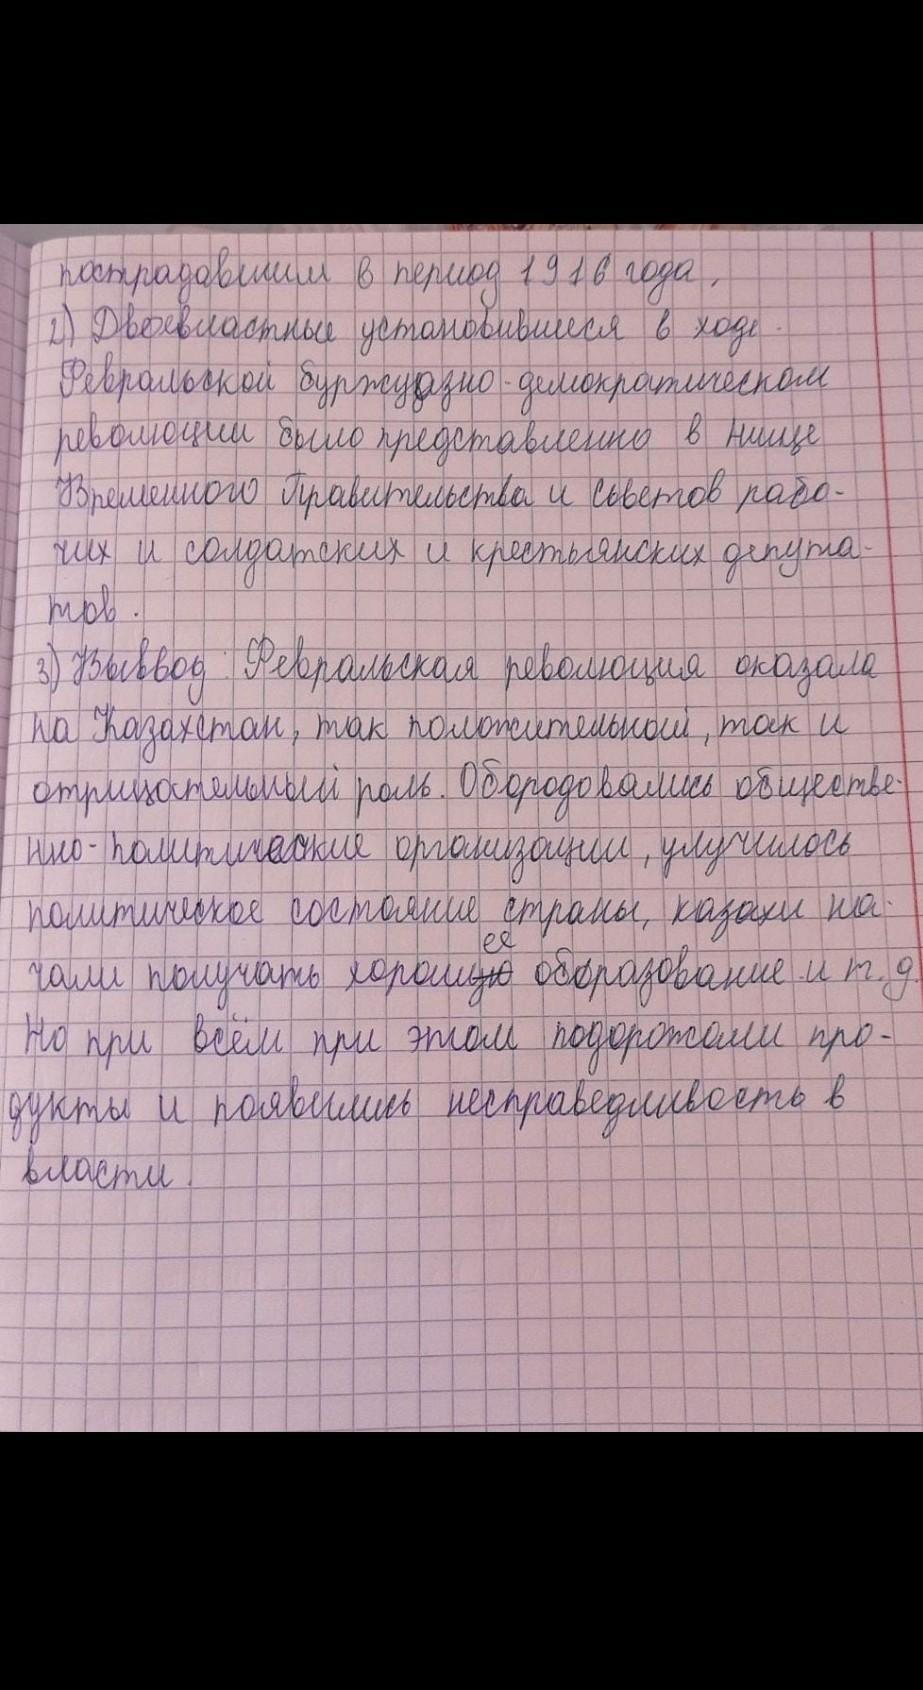 пострадавшим в период 1916 года,
2) Двоевластные установившиеся в ходе
Февральской буржуазно-демократическом
революции было представленно в нице
Временного Правительства и Советов рабо-
чих и солдатских и крестьянских депута-
тов.
3) Выввод: Февральская революция оказала
на Казахстан, так положительной, так и
отрицательный роль. Обородовались обществе-
нно-политические организации, улучилось
политическое состояние страны, казахи на-
чали получать хорошее образование и т.д.
Но при всём при этом подорожали про-
дукты и появились несправедливость в
власти.